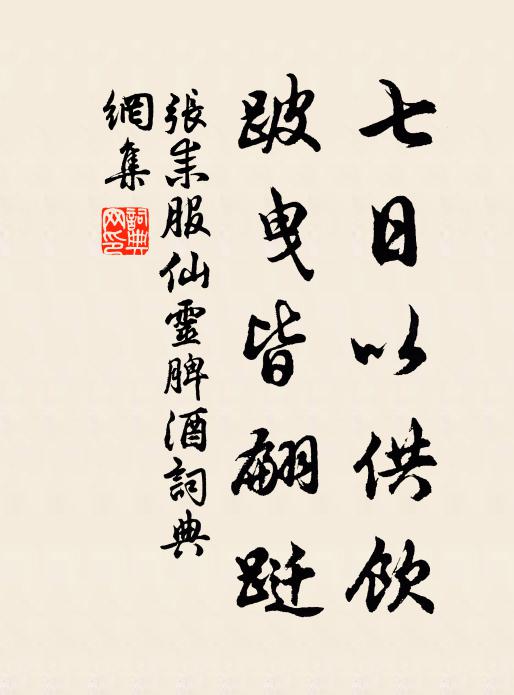 七日以供飲
跛曳皆翩躚
張耒服仙靈脾酒詞典
網集
詞典網印